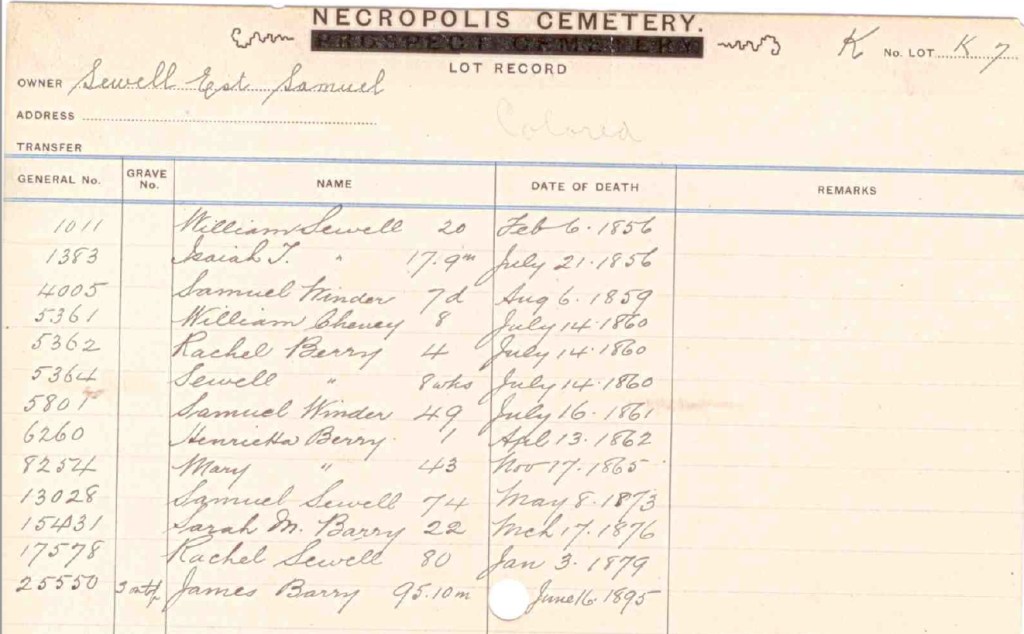 NECROPOLIS CEMETERY.
PROSPECT CEMETERY
K No. LOT K 7
LOT RECORD
OWNER Sewell Est Samuel
ADDRESS
Colored
TRANSFER
GENERAL No. GRAVE No. NAME DATE OF DEATH REMARKS
1011 William Sewell 20 Feb 6. 1856
1383 Isaiah T. " 17.9m July 21. 1856
4005 Samuel Winder 7d Aug 6. 1859
5361 William Chevey 8 July 14. 1860
5362 Rachel Berry 4 July 14. 1860
5364 Sewell " 8 wks July 14. 1860
5801 Samuel Winder 49 July 16. 1861
6260 Henrietta Berry. 1 Apl 13. 1862
8254 Mary " 43 Nov 17. 1865
13028 Samuel Sewell 74 May 8. 1873
15431 Sarah M. Barry 22 Mch 17. 1876
17578 Rachel Sewell 80 Jan 3. 1879
25550 James Barry 95.10m June 16. 1895